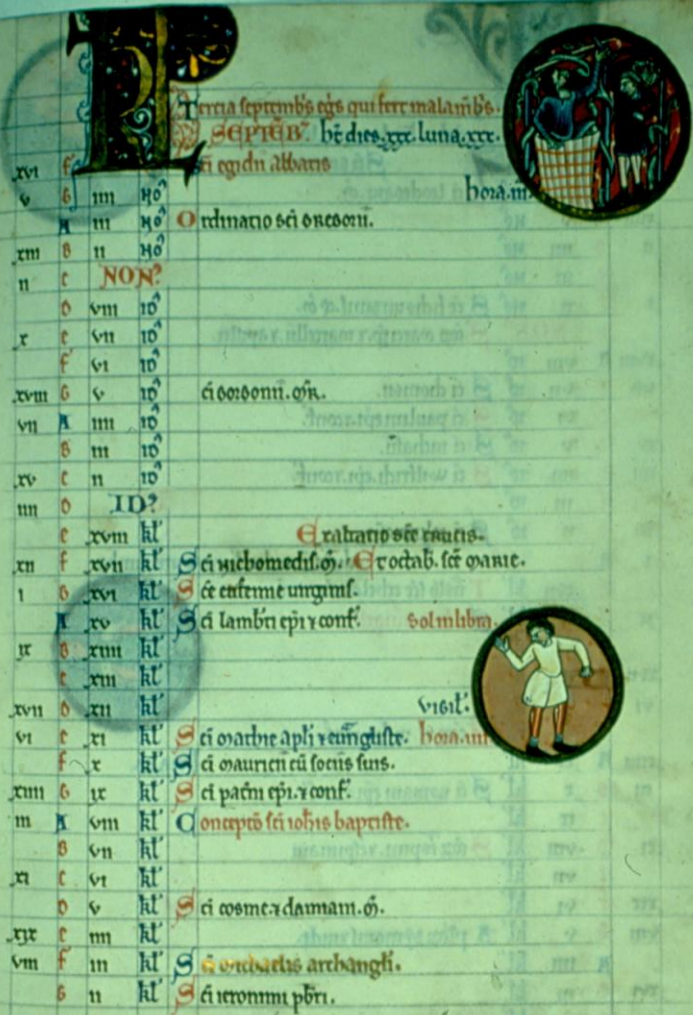 KL
Tercia septemb̄s
SEPTĒB̄. h̄t dies .xxx. luna .xxx.
xvi f sci egidii abbatis
v G iiii No hora .iii.
A iii No Ordinatio sci Gregorii.
xiii B ii No
ii C NON
D viii id
x E vii id
f vi id
xviii G v id ci Gorgonii. m̄r.
vii A iiii id
B iii id
xv C ii id
iiii D ID
E xviii kl Exaltatio sc̄e crucis.
xii f xvii kl Sci Nichomedis. m̄. Et octab̄. sc̄e Marie.
i G xvi kl Sc̄e eufemie uirginis.
A xv kl Sci lamb̄ti ep̄i ⁊ conf̄. Sol in libra.
ix B xiiii kl
C xiii kl
xvii D xii kl vigil̄.
vi E xi kl Sci Mathie ap̄li ⁊ euangliste. hora .iii
f x kl Sci Mauricii cū sociis suis.
xiiii G ix kl Sci pat̄ni ep̄i. ⁊ conf̄.
iii A viii kl Conceptō sci ioh̄is baptiste.
B vii kl
xi C vi kl
D v kl Sci cosme. ⁊ damiani. m̄.
xix E iiii kl
viii f iii kl Sci Michaelis archangli.
G ii kl Sci ieronimi pb̄ri.